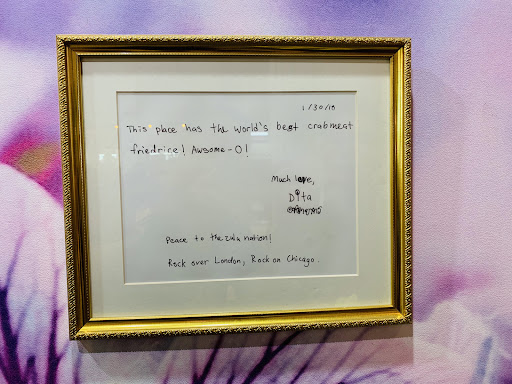 1/30/18
This place has the world's best crabmeat
friedrice! Awsome-O!
Much love,
Dita
Peace to the zulu nation!
Rock over London, Rock on Chicago.